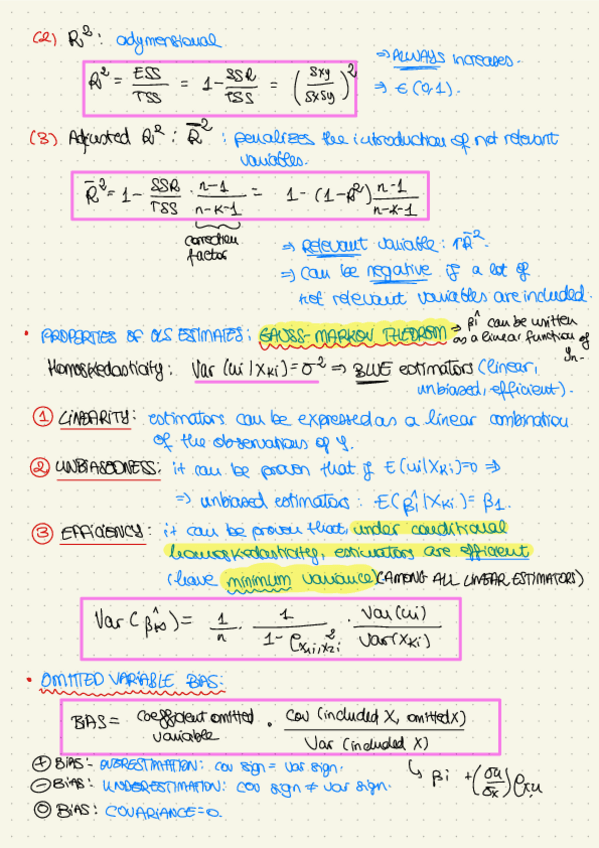 (2) R²: adymensional
R² = ESS/TSS = 1 - SSR/TSS = (Sxy/SxSy)²
⇒ ALWAYS increases.
⇒ ∈ (0,1).
(3) Adjusted R²: R̄²: penalizes the introduction of not relevant
variables.
R̄² = 1 - SSR/TSS · n-1/n-k-1 = 1 - (1-R²) n-1/n-k-1
correction
factor
⇒ Relevant variable: ↑R̄².
⇒ Can be negative if a lot of
not relevant variables are included.
• PROPERTIES OF OLS ESTIMATES: GAUSS-MARKOV THEOREM ⇒ β̂i can be written
as a linear function of
yn.
Homoskedasticity: Var (ui | Xki) = σ² ⇒ BLUE estimators (linear,
unbiased, efficient).
① LINEARITY: estimators can be expressed as a linear combination
of the observations of y.
② UNBIASDNESS: it can be proven that if E(ui|Xki)=0 ⇒
⇒ unbiased estimators: E(β̂i|Xki) = β1.
③ EFFICIENCY: it can be proven that, under conditional
homoskedasticity, estimators are efficient
(have minimum variance) (AMONG ALL LINEAR ESTIMATORS)
Var(β̂k) = 1/n · 1/1-ρ²x1i,x2i · Var(ui)/Var(Xki)
• OMITTED VARIABLE BIAS:
BIAS = coefficient omitted variable · Cov (included X, omitted X)/Var (included X)
⊕ BIAS: OVERESTIMATION: cov sign = var sign.
↳ βi + (σu/σx) ρxu
⊖ BIAS: UNDERESTIMATION: cov sign ≠ var sign.
⓪ BIAS: COVARIANCE=0.